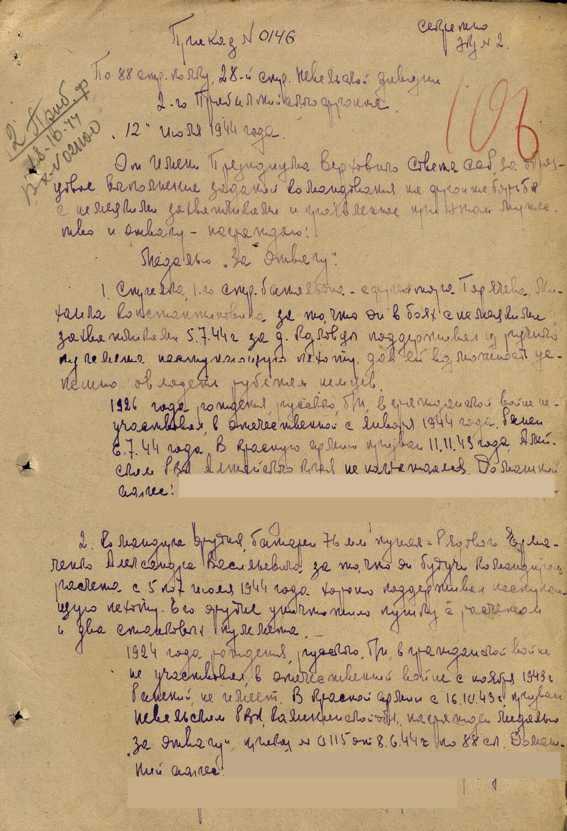 Секретно
Экз № 2.
Приказ № 0146
По 88 стр. полку, 28-й стр. Невельской дивизии
2-го Прибалтийского фронта.
12 июля 1944 года.
2 Приб ф
106
От имени Президиума Верховного Совета СССР, за образ-
цовое выполнение заданий командования на фронте борьбы
с немецкими захватчиками и проявленное при этом муже-
ство и отвагу - награждаю:
Медалью "За отвагу":
1. Стрелка, 1-го стр. батальона - Горячева, Ми-
хаила Константиновича за то что он в боях с немецкими
захватчиками 5.7.44г за д. поддерживал из ручного
пулемета наступающую пехоту, дав ей возможность ус-
пешно овладеть рубежом немцев.
1926 года рождения, русский, б/п, в гражданской войне не
участвовал, в отечественной с января 1944 года. Ранен
6.7.44 года. В Красную армию призван 11.11.43 года,
РВК Алтайского края не награждался. Домашний
адрес:
2. Командира орудия, батареи 76 мм пушек - Рядового
Александра Васильевича за то что он будучи командиром
расчета с 5 по 7 июля 1944 года хорошо поддерживал наступаю-
щую пехоту. Его орудие уничтожило пушку с расчетом
и два станковых пулемета.
1924 года рождения, русский, б/п, в гражданской войне
не участвовал, в отечественной войне с ноября 1943г
Ранений не имеет. В Красной армии с 16.10.43г призван
Невельским РВК, Калининской обл, награжден медалью
"за отвагу", приказ № 0115 от 8.6.44г по 88 сп. Домаш-
ний адрес: